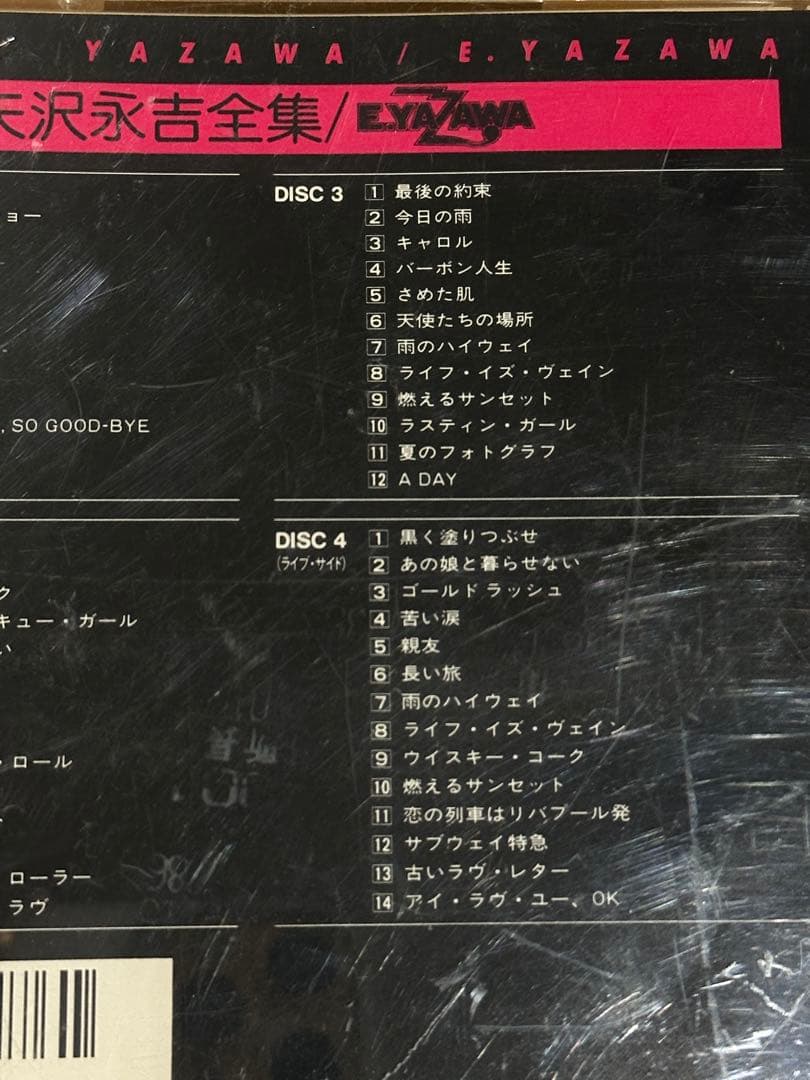 YAZAWA / E.YAZAWA
矢沢永吉全集/E.YAZAWA
ョー
, SO GOOD-BYE
DISC 3
1 最後の約束
2 今日の雨
3 キャロル
4 バーボン人生
5 さめた肌
6 天使たちの場所
7 雨のハイウェイ
8 ライフ・イズ・ヴェイン
9 燃えるサンセット
10 ラスティン・ガール
11 夏のフォトグラフ
12 A DAY
ク
キュー・ガール
い
・ロール
ローラー
ラヴ
DISC 4
(ライブ・サイド)
1 黒く塗りつぶせ
2 あの娘と暮らせない
3 ゴールドラッシュ
4 苦い涙
5 親友
6 長い旅
7 雨のハイウェイ
8 ライフ・イズ・ヴェイン
9 ウイスキー・コーク
10 燃えるサンセット
11 恋の列車はリバプール発
12 サブウェイ特急
13 古いラヴ・レター
14 アイ・ラヴ・ユー、OK